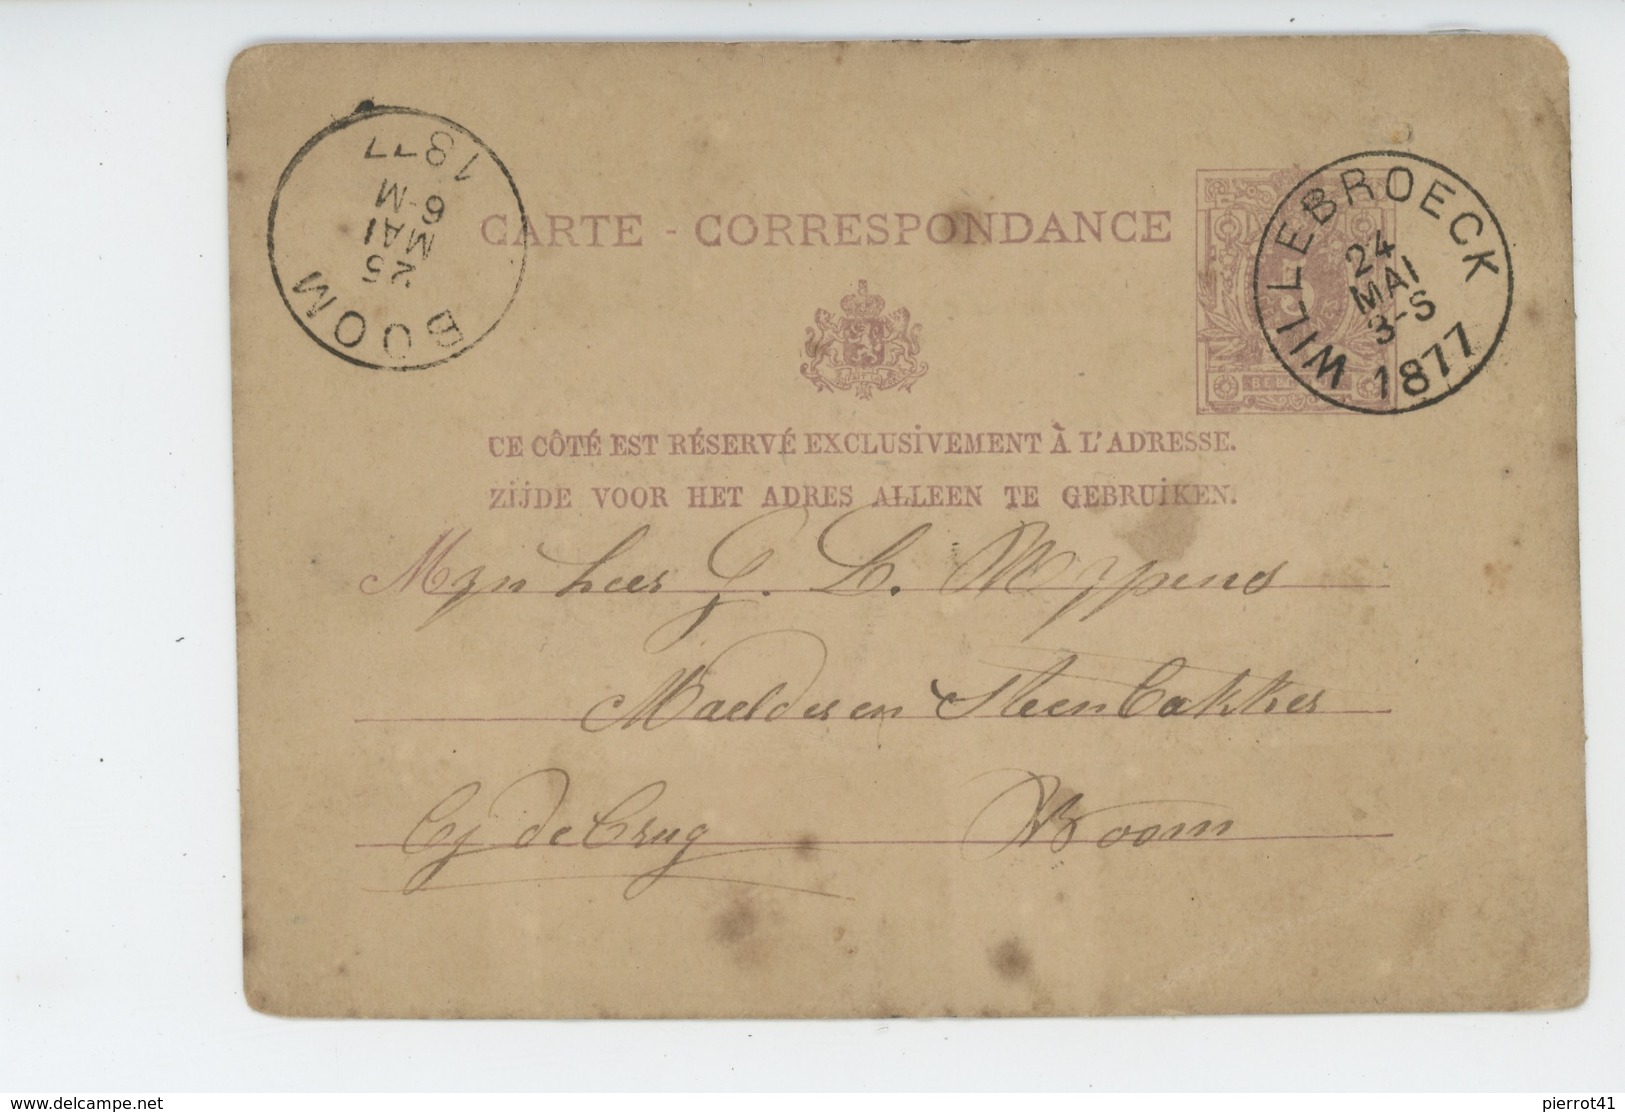 BOOM
25
MAI
6-M
1877
CARTE - CORRESPONDANCE
WILLEBROECK
24
MAI
3-S
1877
CE CÔTÉ EST RÉSERVÉ EXCLUSIVEMENT À L'ADRESSE.
ZIJDE VOOR HET ADRES ALLEEN TE GEBRUIKEN.
Mynheer L.
Maelder en Steenbakker
by de brug Boom
www.delcampe.net
pierrot41